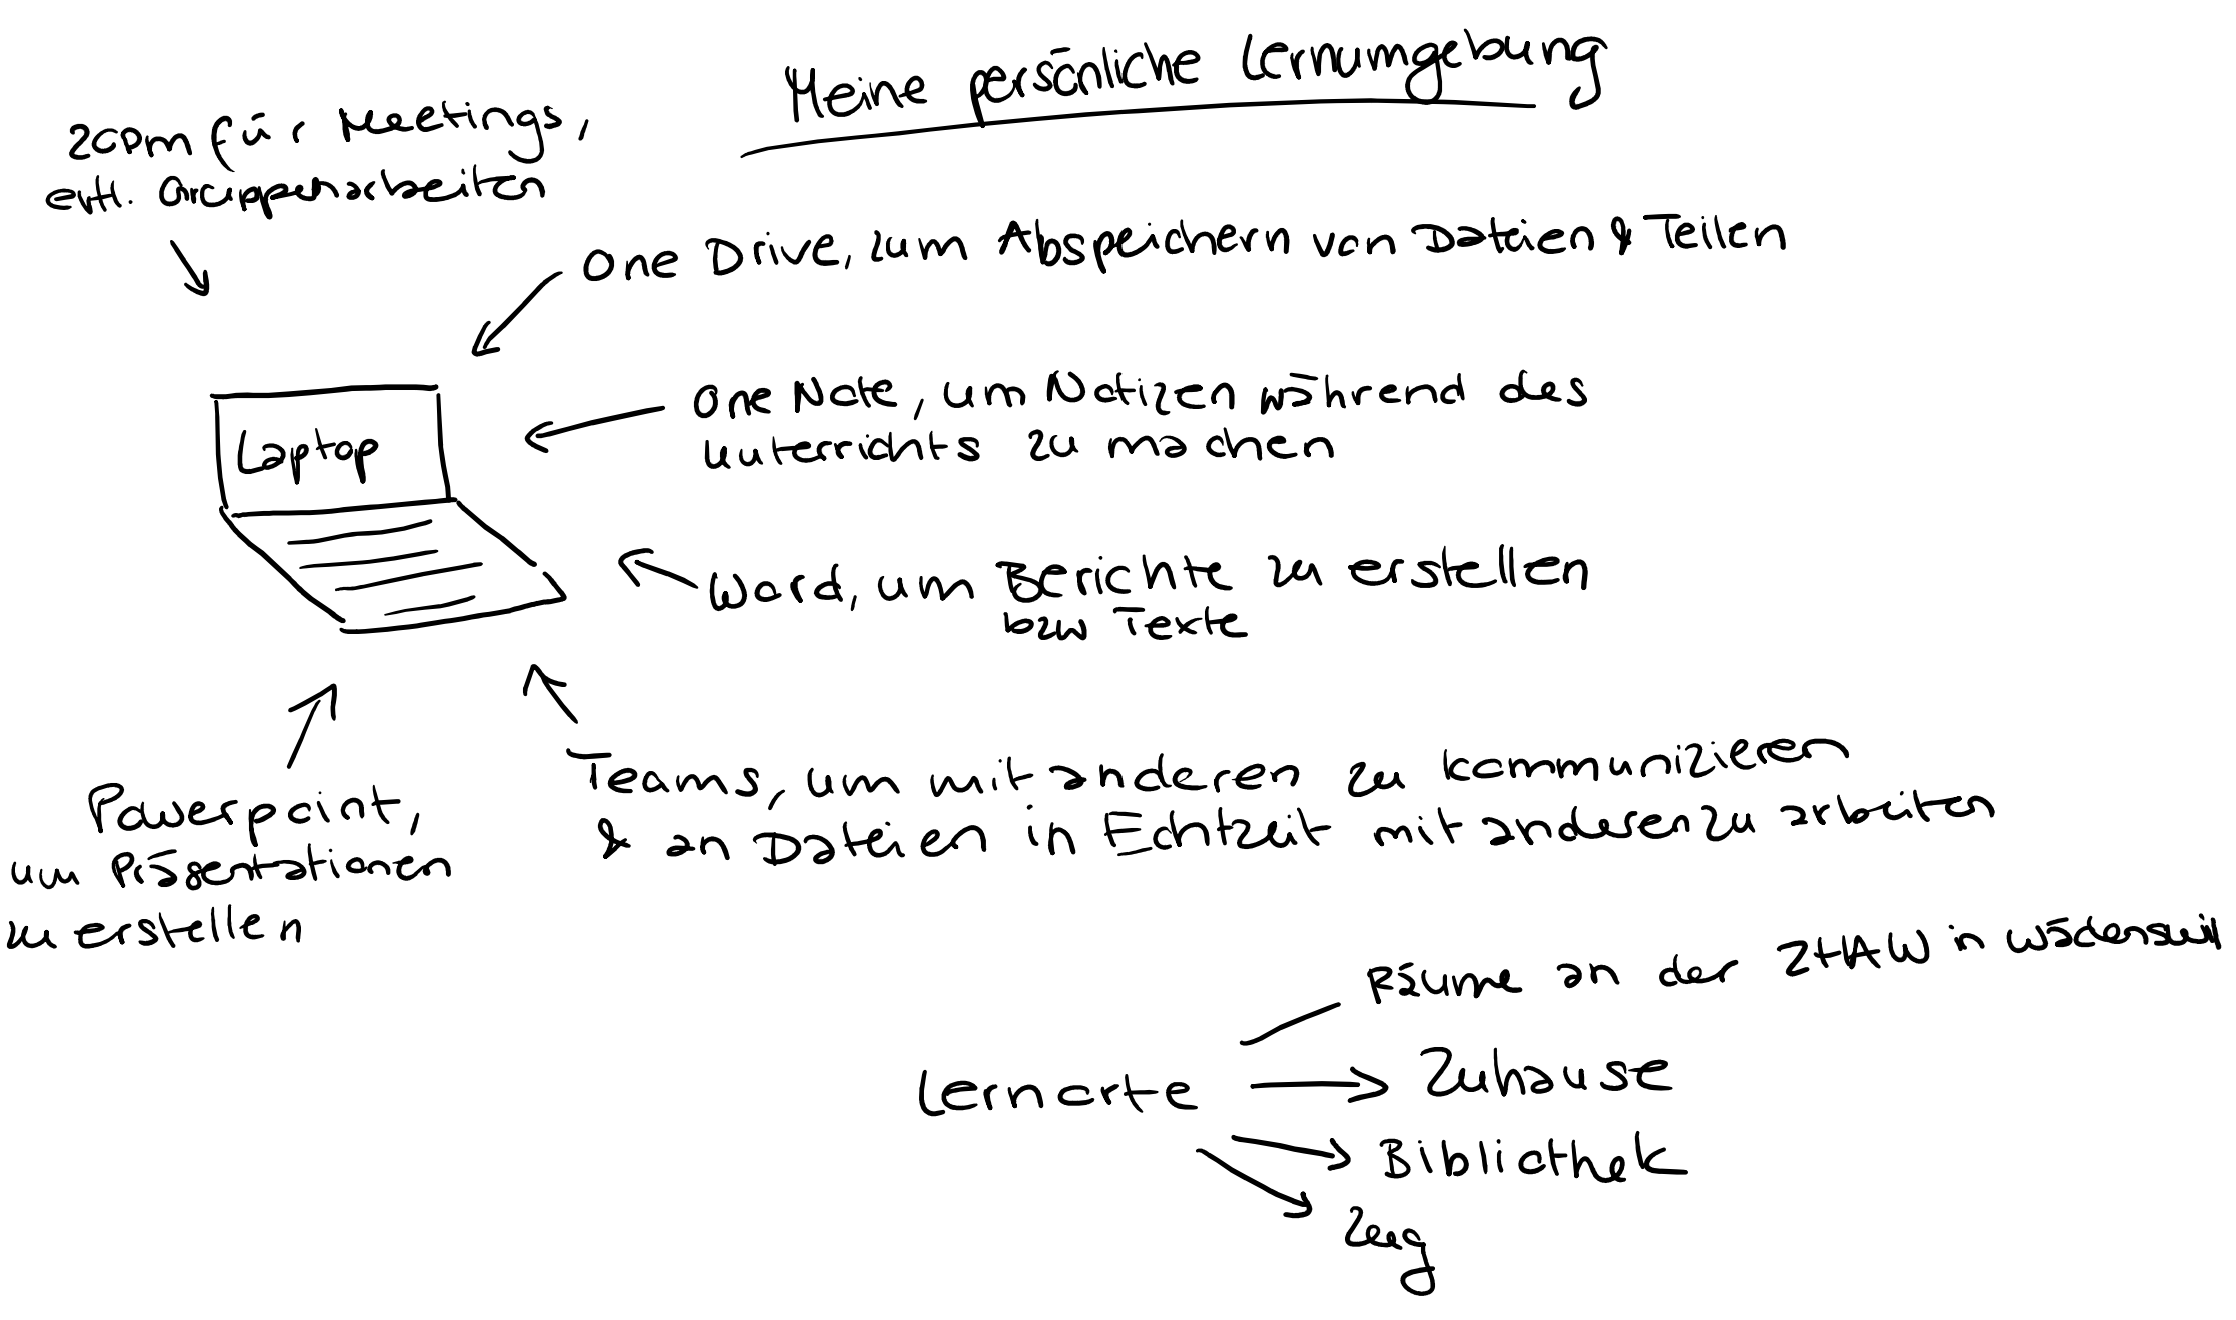 Meine persönliche Lernumgebung
Zoom für Meetings,
evtl. Gruppenarbeiten
One Drive, zum Abspeichern von Dateien & Teilen
One Note, um Notizen während des
Unterrichts zu machen
Laptop
Word, um Berichte zu erstellen
bzw Texte
Teams, um mit anderen zu kommunizieren
& an Dateien in Echtzeit mit anderen zu arbeiten
Powerpoint,
um Präsentationen
zu erstellen
Räume an der ZHAW in Wädenswil
Lernorte
Zuhause
Bibliothek
Zug